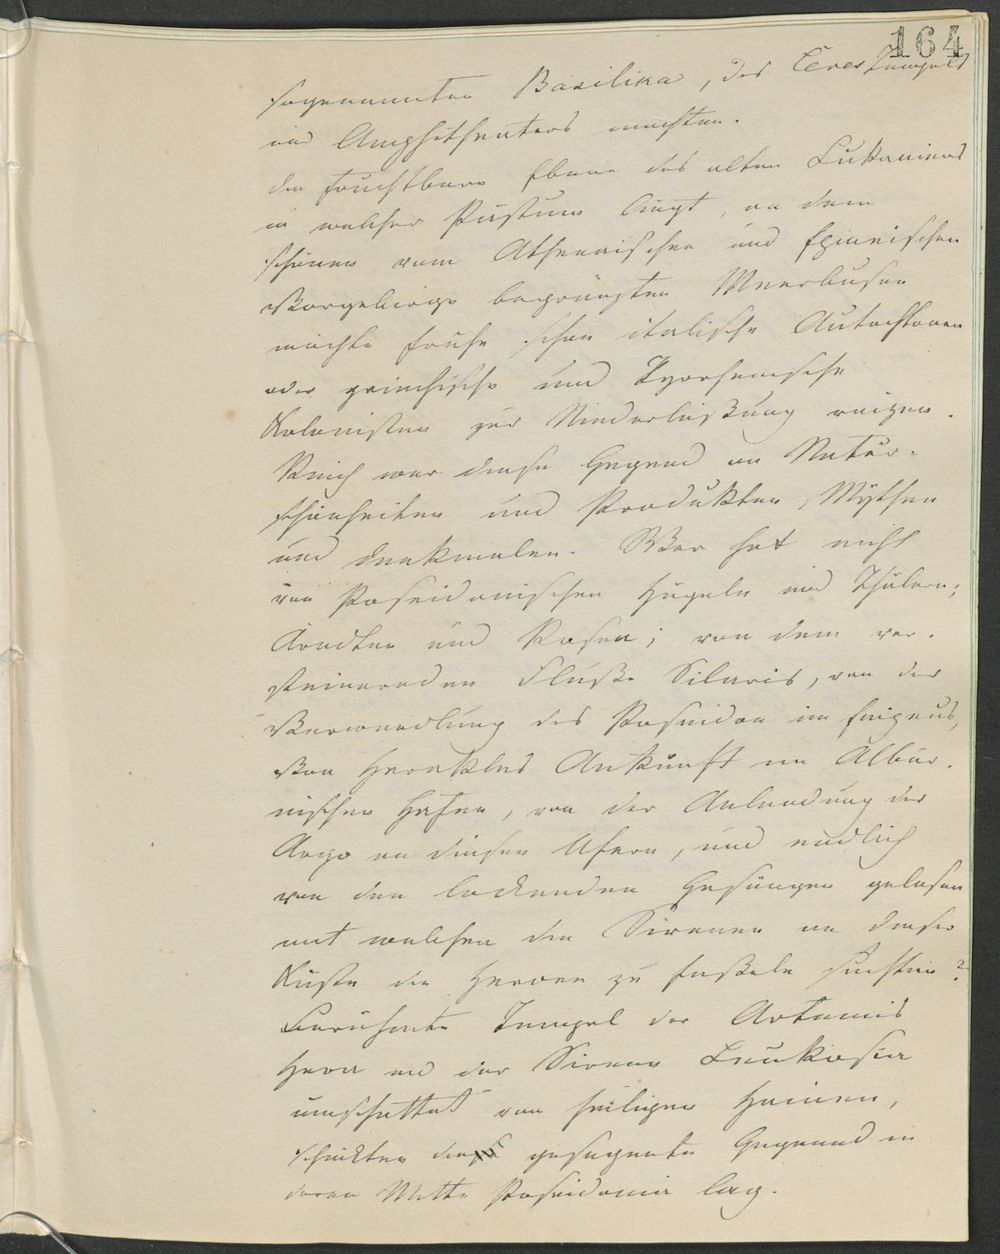 164
sogenannten Basilika, des Ceres Tempels
und Amphitheaters machten.
Die fruchtbare Ebene des alten Lukaniens
in welcher Pästum liegt, an dem
schönen vom Athenaischen und
Vorgebirge begränzten Meerbusen
mochte frühe schon italische Autochtonen
oder griechische und Tyrrhenische
Kolonisten zur Niederlaßung reizen.
Reich war diese Gegend an Natur-
schönheiten und Produkten, Mythen
und Denkmalen. Wer hat nicht
von Poseidonischen Hügeln und Thälern;
und Rosen; von dem ver-
steinernden Fluße Silaris, von der
Verwandlung des Poseidon im
Von Herakles Ankunft im Albur-
nischen Hafen, von der Anlandung der
Argo an diesen Ufern, und endlich
von den lockenden Gesängen gelesen
mit welchen die Sirenen an dieser
Küste die Heroen zu feßeln suchten?
Berühmte Tempel der Artemis
Hera und der Sirene Leukosia
umschattet von heiligen Hainen,
schückten diese gesegnete Gegend in
deren Mitte Poseidonia lag.